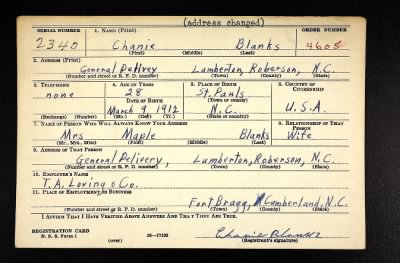 (address changed)
SERIAL NUMBER 1. NAME (Print) ORDER NUMBER
2340 Chanie Blanks 4605
(First) (Middle) (Last)
2. ADDRESS (Print)
General Delivery Lumberton, Roberson, N.C.
(Number and street or R. F. D. number) (Town) (County) (State)
3. TELEPHONE 4. AGE IN YEARS 5. PLACE OF BIRTH 6. COUNTRY OF CITIZENSHIP
none 28 St. Pauls
DATE OF BIRTH (Town or county)
March 9, 1912 N.C. U.S.A.
(Exchange) (Number) (Mo.) (Day) (Yr.) (State or country)
7. NAME OF PERSON WHO WILL ALWAYS KNOW YOUR ADDRESS 8. RELATIONSHIP OF THAT PERSON
Mrs Maple Blanks Wife
(Mr., Mrs., Miss) (First) (Middle) (Last)
9. ADDRESS OF THAT PERSON
General Delivery, Lumberton, Roberson, N.C.
(Number and street or R. F. D. number) (Town) (County) (State)
10. EMPLOYER'S NAME
T. A. Loving & Co.
11. PLACE OF EMPLOYMENT OR BUSINESS
Fort Bragg, Cumberland, N.C.
(Number and street or R. F. D. number) (Town) (County) (State)
I AFFIRM THAT I HAVE VERIFIED ABOVE ANSWERS AND THAT THEY ARE TRUE.
REGISTRATION CARD
D. S. S. Form 1 (over) 16-17105 Chanie Blanks
(Registrant's signature)